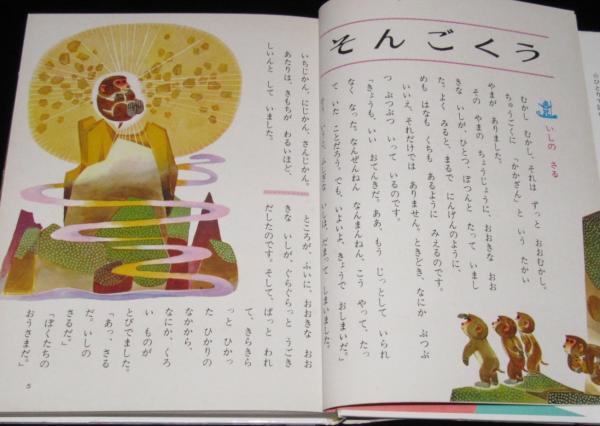 そんごくう
いしの さる
むかし むかし、それは ずっと おおむかし。
ちゅうごくに 「かかざん」と いう たかい
やまが ありました。
その やまの ちょうじょうに、おおきな おお
きな いしが、ひとつ、ぽつんと たって いまし
た。よく みると、まるで、にんげんのように、
めも はなも くちも あるように みえるのです。
いいえ、それだけでは ありません。ときどき、なにか ぶつぶ
つ ぶつぶつ いって いるのです。
「きょうも、いい おてんきだ。ああ、もう じっとして いられ
なく なった。なんぜんねん なんまんねん、こう やって、たっ
て いた ことだろう。でも、いよいよ、きょうで おしまいだ。」
いしは、だまって しまいました。
いちじかん、にじかん、さんじかん。
あたりは、きもちが わるいほど、
しいんと して いました。
ところが、ふいに、おおきな おお
きな いしが、ぐらぐらっと うごき
だしたのです。そして、ぱっと われ
て、きらきら
っと ひかっ
た ひかりの
なかから、
なにか、くろ
い ものが
とびでました。
「あっ、さる
だ。いしの
さるだ。」
「ぼくたちの
おうさまだ。」
5